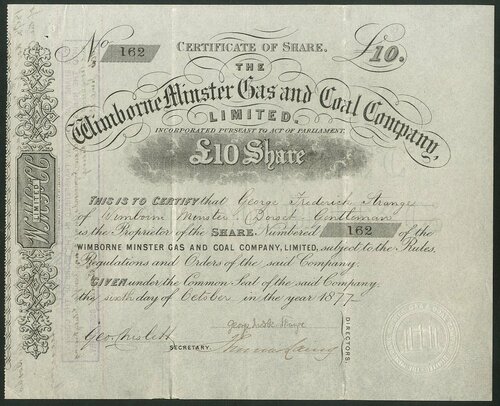 No 162 CERTIFICATE OF SHARE. £10.
THE
Wimborne Minster Gas and Coal Company,
LIMITED.
INCORPORATED PURSUANT TO ACT OF PARLIAMENT.
£10 Share
THIS IS TO CERTIFY that George Frederick
of Wimborne Minster, Dorset Gentleman
is the Proprietor of the SHARE Numbered 162 of the
WIMBORNE MINSTER GAS AND COAL COMPANY, LIMITED, subject to the Rules,
Regulations and Orders of the said Company.
GIVEN under the Common Seal of the said Company
the sixth day of October in the year 1877
SECRETARY.
DIRECTORS.
LIMITED